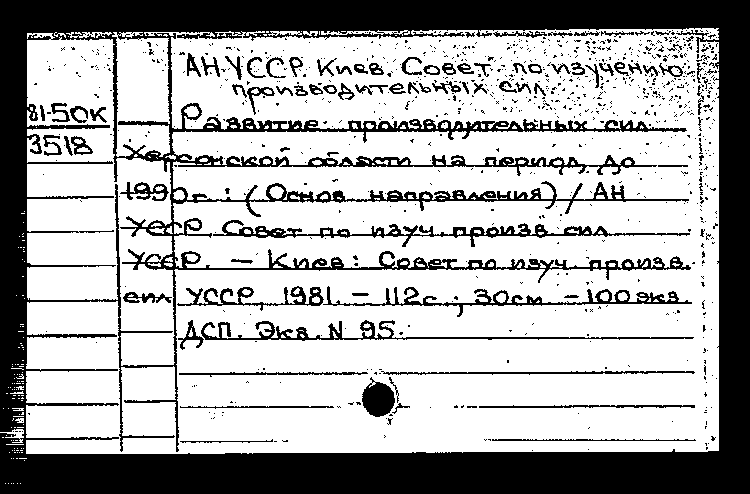 АН УССР. Киев. Совет по изучению
производительных сил.
81-50к
3518
Развитие производительных сил
Херсонской области на период до
1990г. : (Основ направления) / АН
УССР, Совет по изуч. произв. сил
УССР. — Киев : Совет по изуч. произв.
сил УССР, 1981. — 112с. ; 30см. — 100 экз.
ДСП. Экз. N 95.